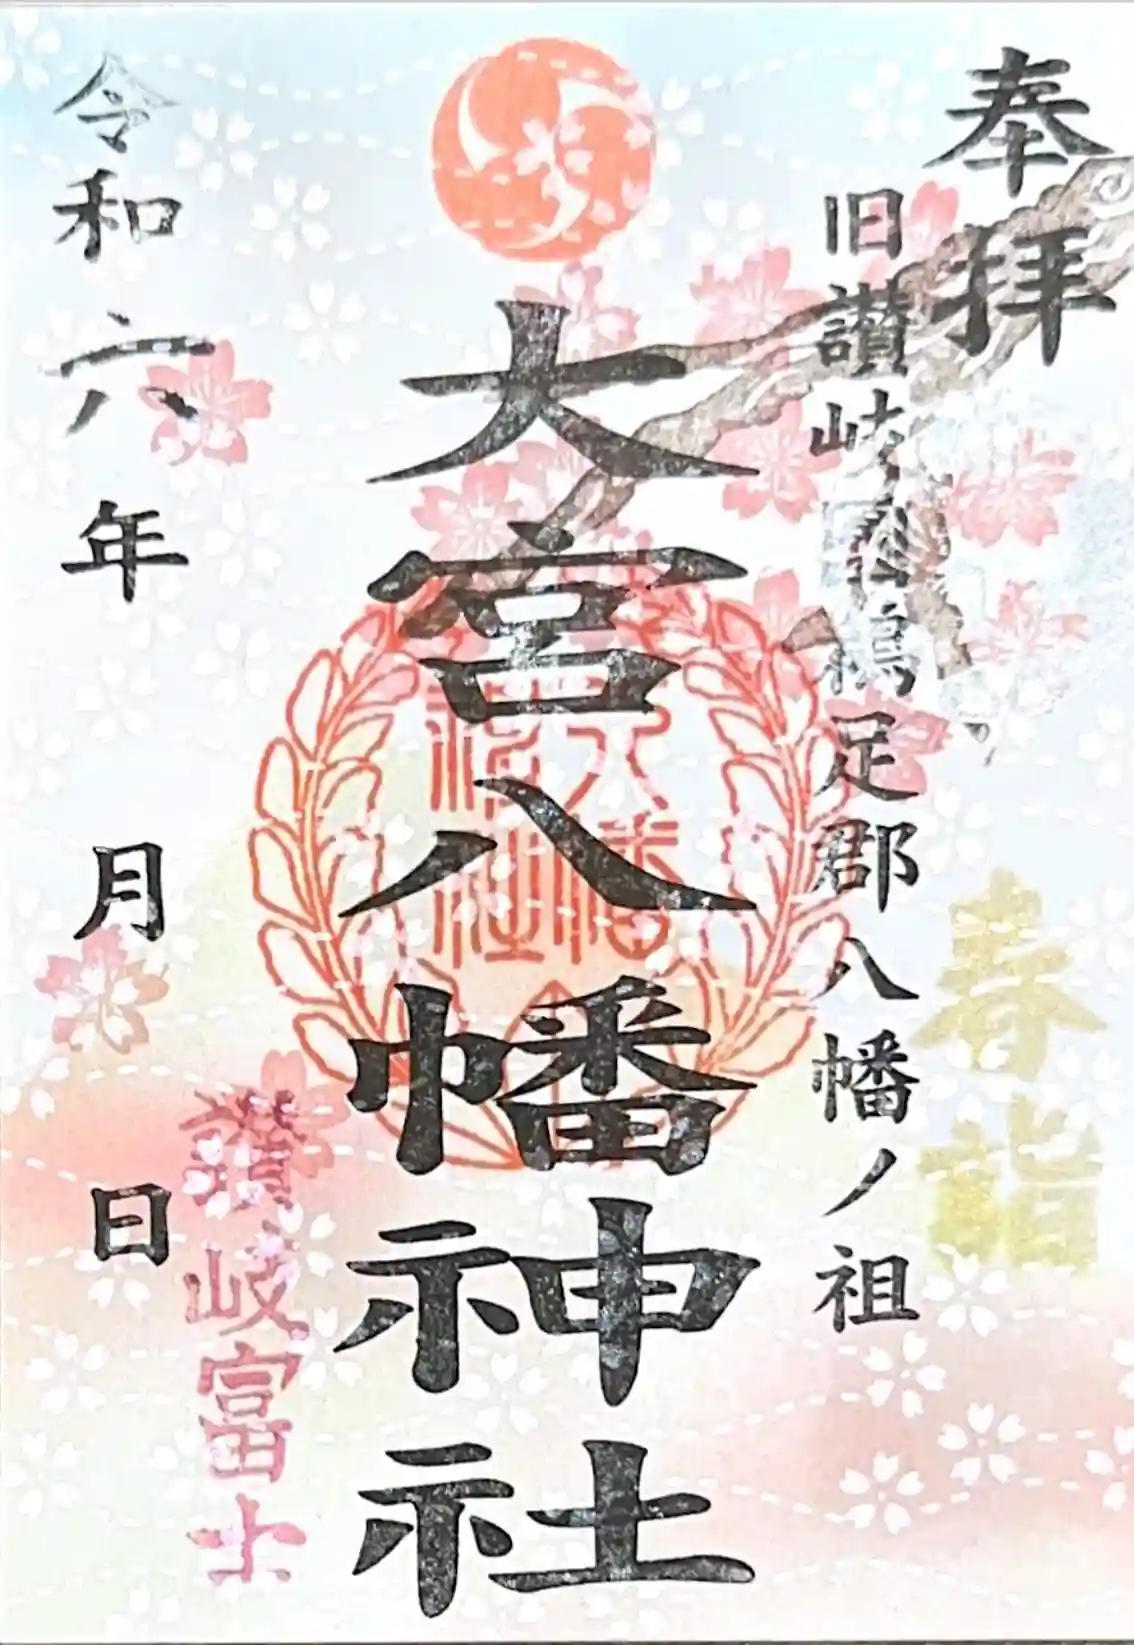 奉拝
旧讃岐國鵜足郡八幡ノ祖
春詣
大宮八幡神社
讃岐富士
令和六年 月 日